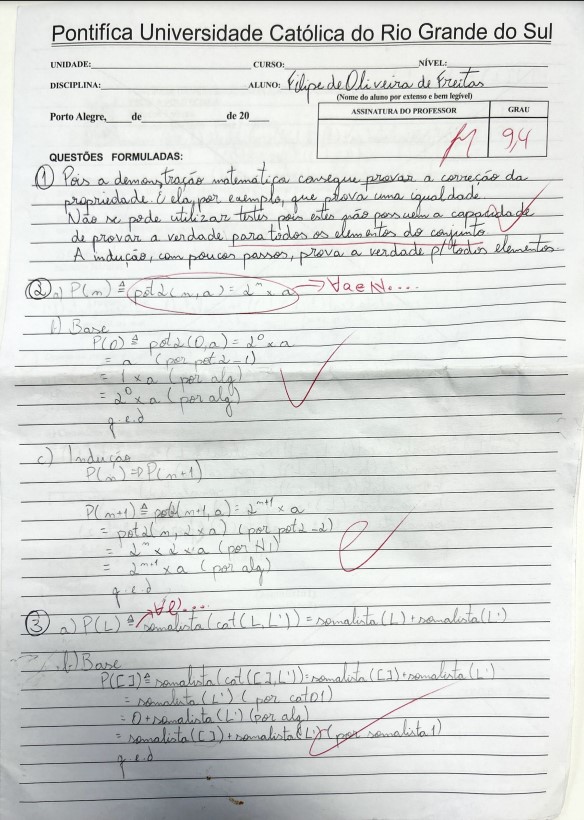 Pontifíca Universidade Católica do Rio Grande do Sul
UNIDADE: CURSO: NÍVEL:
DISCIPLINA: ALUNO: Filipe de Oliveira de Freitas
(Nome do aluno por extenso e bem legível)
Porto Alegre, de de 20
ASSINATURA DO PROFESSOR GRAU
9,4
QUESTÕES FORMULADAS:
1 Pois a demonstração matemática consegue provar a correção da
propriedade. É ela, por exemplo, que prova uma igualdade.
Não se pode utilizar testes pois estes não possuem a capacidade
de provar a verdade para todos os elementos do conjunto.
A indução, com poucos passos, prova a verdade p/ todos elementos.
2 a) P(n) ≜ pot2(n,a) = 2ⁿ × a → ∀a∈ℕ....
b) Base
P(0) ≜ pot2(0,a) = 2⁰ × a
= a (por pot2-1)
= 1 × a (por alg)
= 2⁰ × a (por alg)
q.e.d
c) Indução
P(n) ⇒ P(n+1)
P(n+1) ≜ pot2(n+1,a) = 2ⁿ⁺¹ × a
= pot2(n, 2×a) (por pot2-2)
= 2ⁿ × 2 × a (por HI)
= 2ⁿ⁺¹ × a (por alg)
q.e.d
3 a) P(L) ≜ somalista(cat(L,L')) = somalista(L) + somalista(L')
b) Base
P([]) ≜ somalista(cat([],L')) = somalista([]) + somalista(L')
= somalista(L') (por cat01)
= 0 + somalista(L') (por alg)
= somalista([]) + somalista(L') (por somalista1)
q.e.d